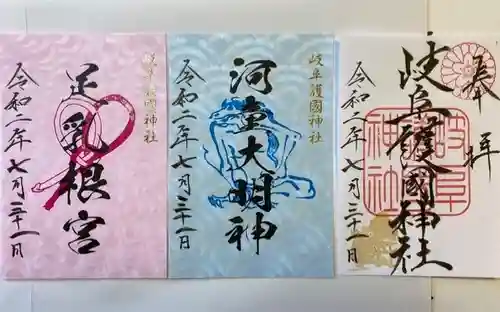 奉拝
岐阜護國神社
岐阜
神社
令和二年七月三十一日
岐阜護國神社
河童大明神
令和二年七月三十一日
岐阜護國神社
足乳根宮
令和二年七月三十一日